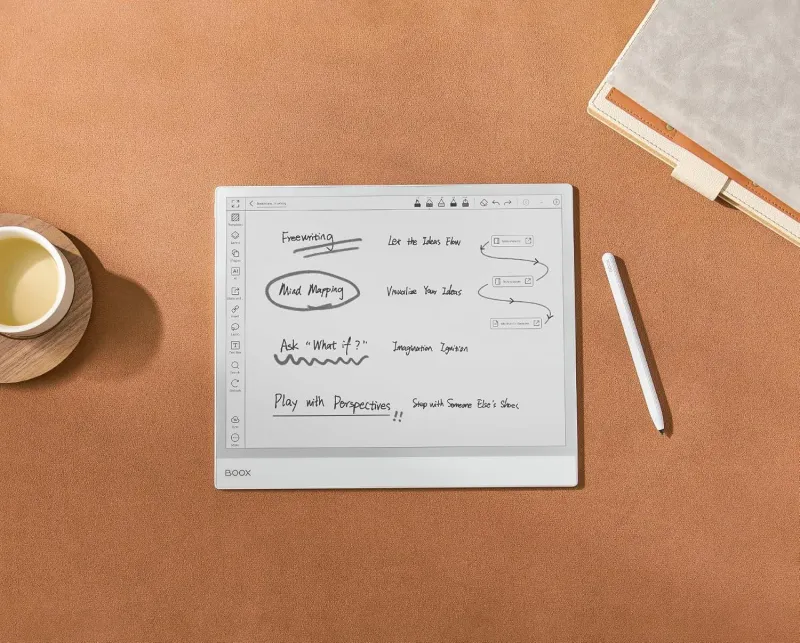 Freewriting Let the Ideas Flow
Mind Mapping Visualize Your Ideas
Ask "What if?" Imagination Ignition
Play with Perspectives!! Step with Someone Else's Shoes
BOOX